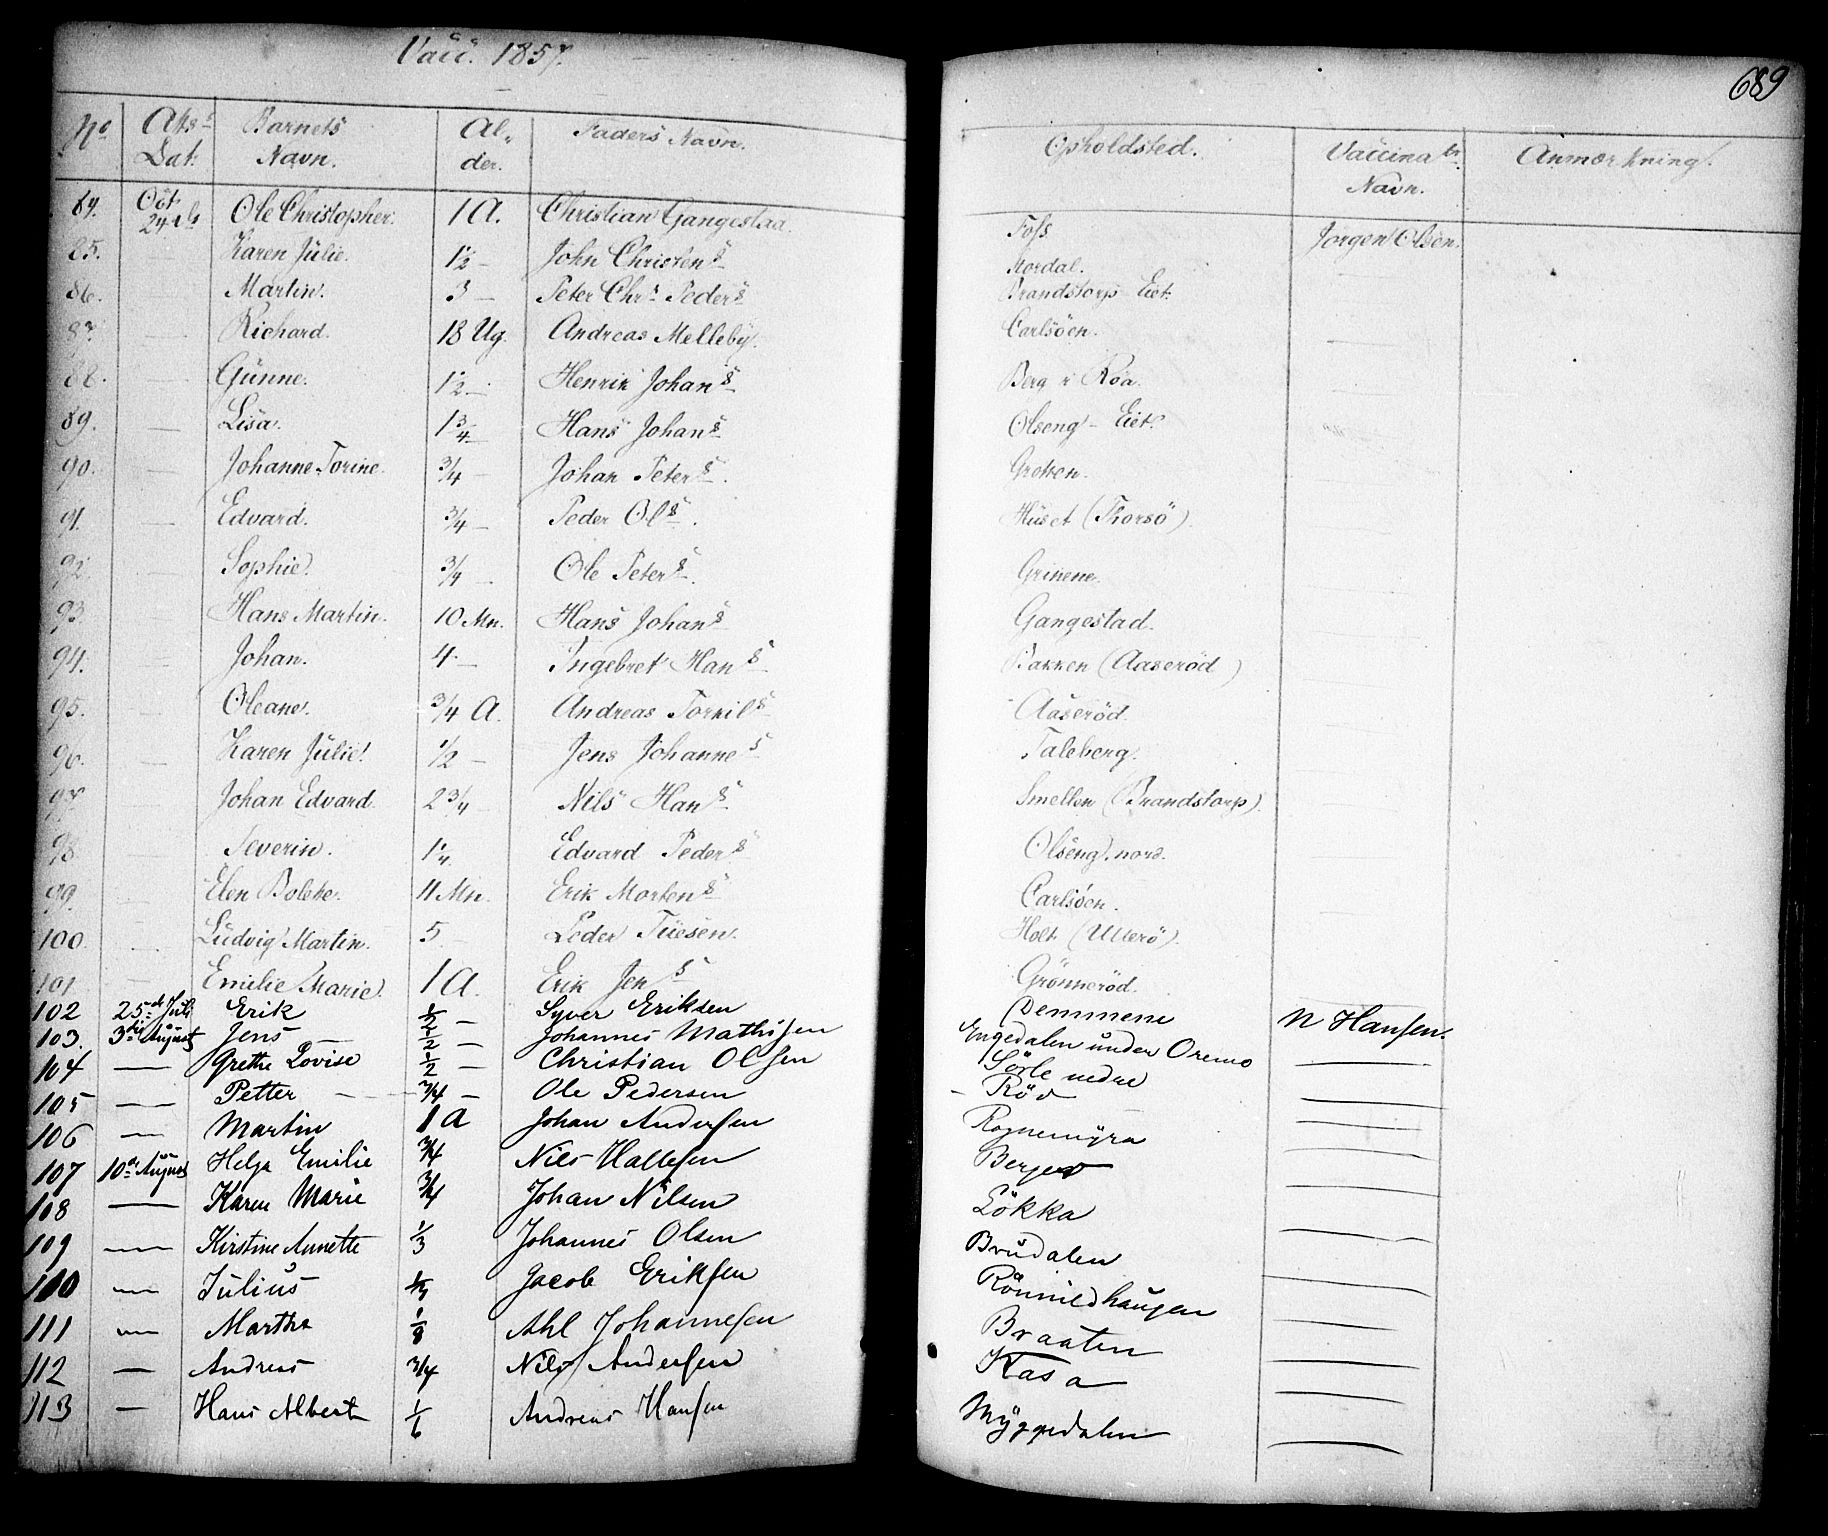 Vacc. 1857.
689
No | Attst Dat. | Barnets Navn. | Alder. | Faders Navn. | Opholdsted. | Vaccinatr Navn. | Anmærkning.
84. | Oct. 24de | Ole Christopher. | 1 A. | Christian Gangestaa. | Foss. | Jørgen Olsen.
85. | — | Karen Julie. | 1/2 — | John Christens | Mordal.
86. | — | Martin. | 3 — | Peter Chrs Peders | Brandstorp Eiet.
87. | — | Richard. | 18 Ug. | Andreas Melleby. | Carlsöen.
88. | — | Gunne. | 1/2 — | Henrik Johans | Berg i Roa.
89. | — | Lisa. | 1 3/4 | Hans Johans | Olseng - Eiet.
90. | — | Johanne Torine. | 3/4 — | Johan Peters. | Grotten.
91. | — | Edvard. | 3/4 — | Peder Ols. | Huset (Thorsö).
92. | — | Sophie. | 3/4 — | Ole Peters. | Grinene.
93. | — | Hans Martin. | 10 Mn. | Hans Johans | Gangestad.
94. | — | Johan. | 4 — | Ingebret Hans | Bakken (Aaseröd)
95. | — | Oleane. | 3/4 A. | Andreas Torkils | Aaseröd.
96. | — | Karen Julie. | 1/2 — | Jens Johannes | Taleberg.
97. | — | Johan Edvard. | 2 3/4 — | Nils Hans. | Smetten (Brandstorp).
98. | — | Severin. | 1/4 | Edvard Peders | Olseng. nord.
99. | — | Elen Bolette. | 11 Mn. | Erik Mortens | Carlsöen.
100. | — | Ludvig Martin. | 5 — | Peder Tuesen. | Holt (Ullerö).
101. | — | Emilie Marie. | 1 A. | Erik Jens | Grönneröd.
102 | 25de Juli | Erik | 1/2 — | Syver Eriksen | Demmene | N Hansen.
103. | 3die August | Jens | 1/2 — | Johannes Mathisen | Engedalen under Oremo
104 | — | Grethe Lovise | 1/2 — | Christian Olsen | Sörle nedre | —
105 | — | Petter | 3/4 — | Ole Pedersen | Röd | —
106 | — | Martin | 1 A | Johan Andersen | Rognemyra | —
107 | 10de August | Helga Emilie | 3/4 | Nils Hallesen | Berger | —
108 | — | Karen Marie | 3/4 | Johan Nilsen | Lökka | —
109 | — | Kirstine Annette | 1/3 | Johannes Olsen | Brudalen | —
110 | — | Julius | 1/4 | Jacob Eriksen | Rönnildhaugen | —
111 | — | Marthe | 1/8 | Ahl Johannesen | Braaten | —
112 | — | Andreas | 3/4 | Nils Andersen | Kasa | —
113 | — | Hans Albert | 1/6 | Andreas Hansen | Myggedalen | —